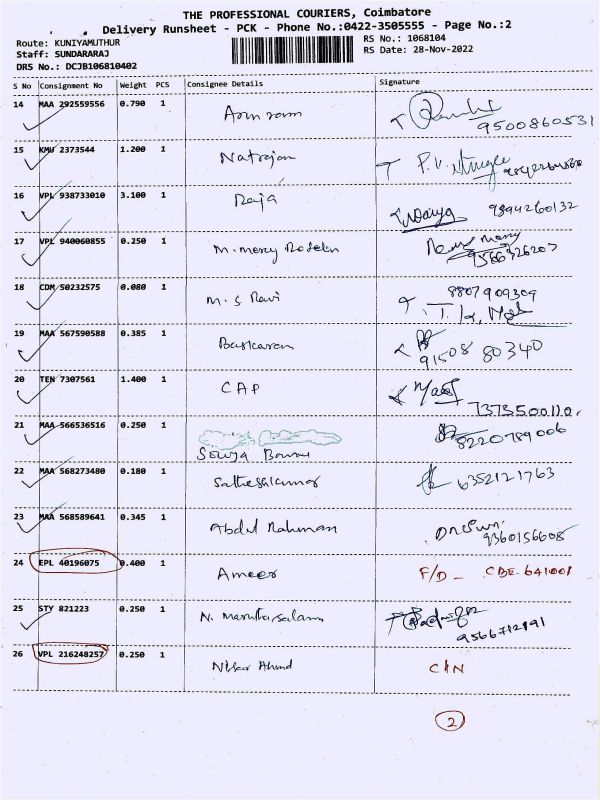 THE PROFESSIONAL COURIERS, Coimbatore
Delivery Runsheet - PCK - Phone No.:0422-3505555 - Page No.:2
Route: KUNIYAMUTHUR
RS No.: 1068104
Staff: SUNDARARAJ
RS Date: 28-Nov-2022
DRS No.: DCJB106810402
S No Consignment No Weight PCS Consignee Details Signature
14 MAA 292559556 0.790 1 Arun ram
9500860531
15 KMU 2373544 1.200 1 Natrajan P.V.
16 VPL 938733010 3.100 1 Raja 9894260132
17 VPL 940060855 0.250 1 M. Mercy Roselin
9566326203
18 CDM 50232575 0.080 1 M. S Ravi 8807909309
19 MAA 567590588 0.385 1 Baskaran
91508 80340
20 TEN 7307561 1.400 1 CAP
7373500110
21 MAA 566536516 0.250 1
8220789006
22 MAA 568273480 0.180 1 Sathesskumar 6352121763
23 MAA 568589641 0.345 1 Abdul Rahman
9360156608
24 EPL 40196075 0.400 1 Ameer F/D - CBE-641001
25 STY 821223 0.250 1 N.
9566712191
26 VPL 216248257 0.250 1 Nisar Ahmd C/N
2